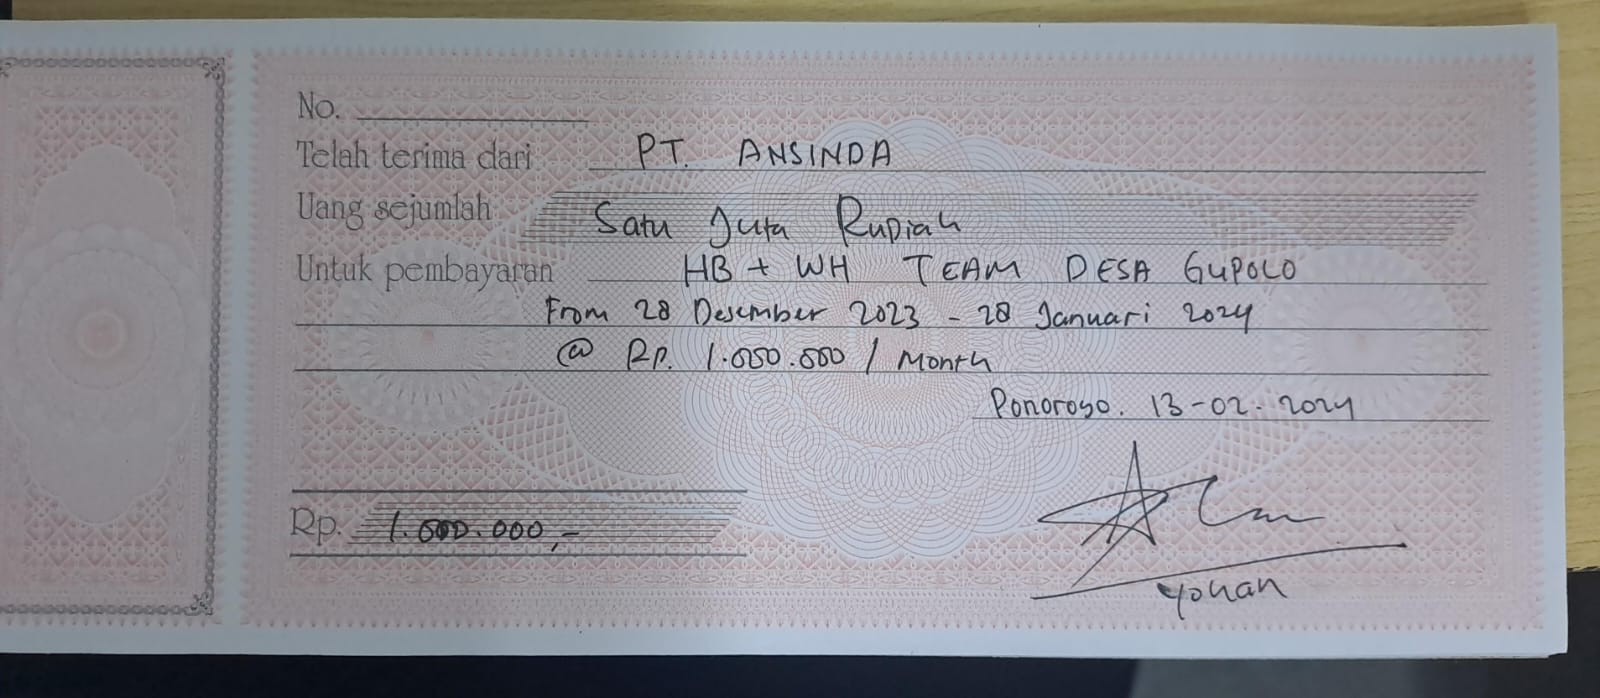 No.
Telah terima dari PT. ANSINDA
Uang sejumlah Satu Juta Rupiah
Untuk pembayaran HB + WH TEAM DESA GUPOLO
From 28 Desember 2023 - 28 Januari 2024
@ Rp. 1.000.000 / Month
Ponorogo. 13-02-2024
Rp. 1.000.000,-
Yohan